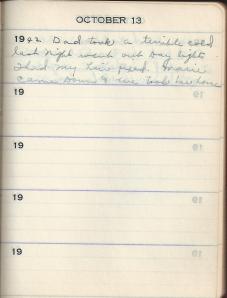 OCTOBER 13
1942 Dad took a terrible cold
last night went out Day lights
I had my hair fixed. Marie
came down & we took her home
19
19
19
19